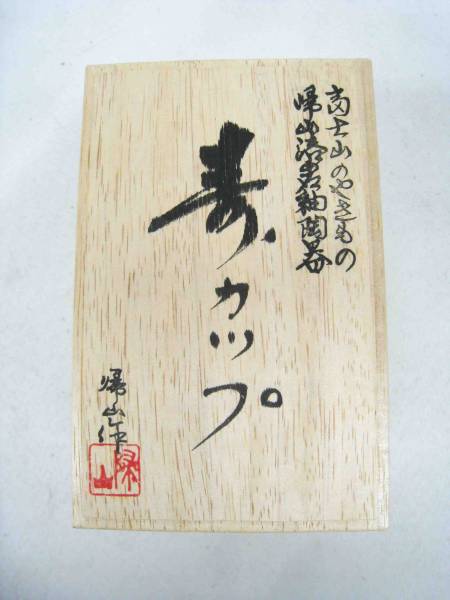 富士山のやきもの
帰山溶岩釉陶器
寿カップ
帰山作
帰山